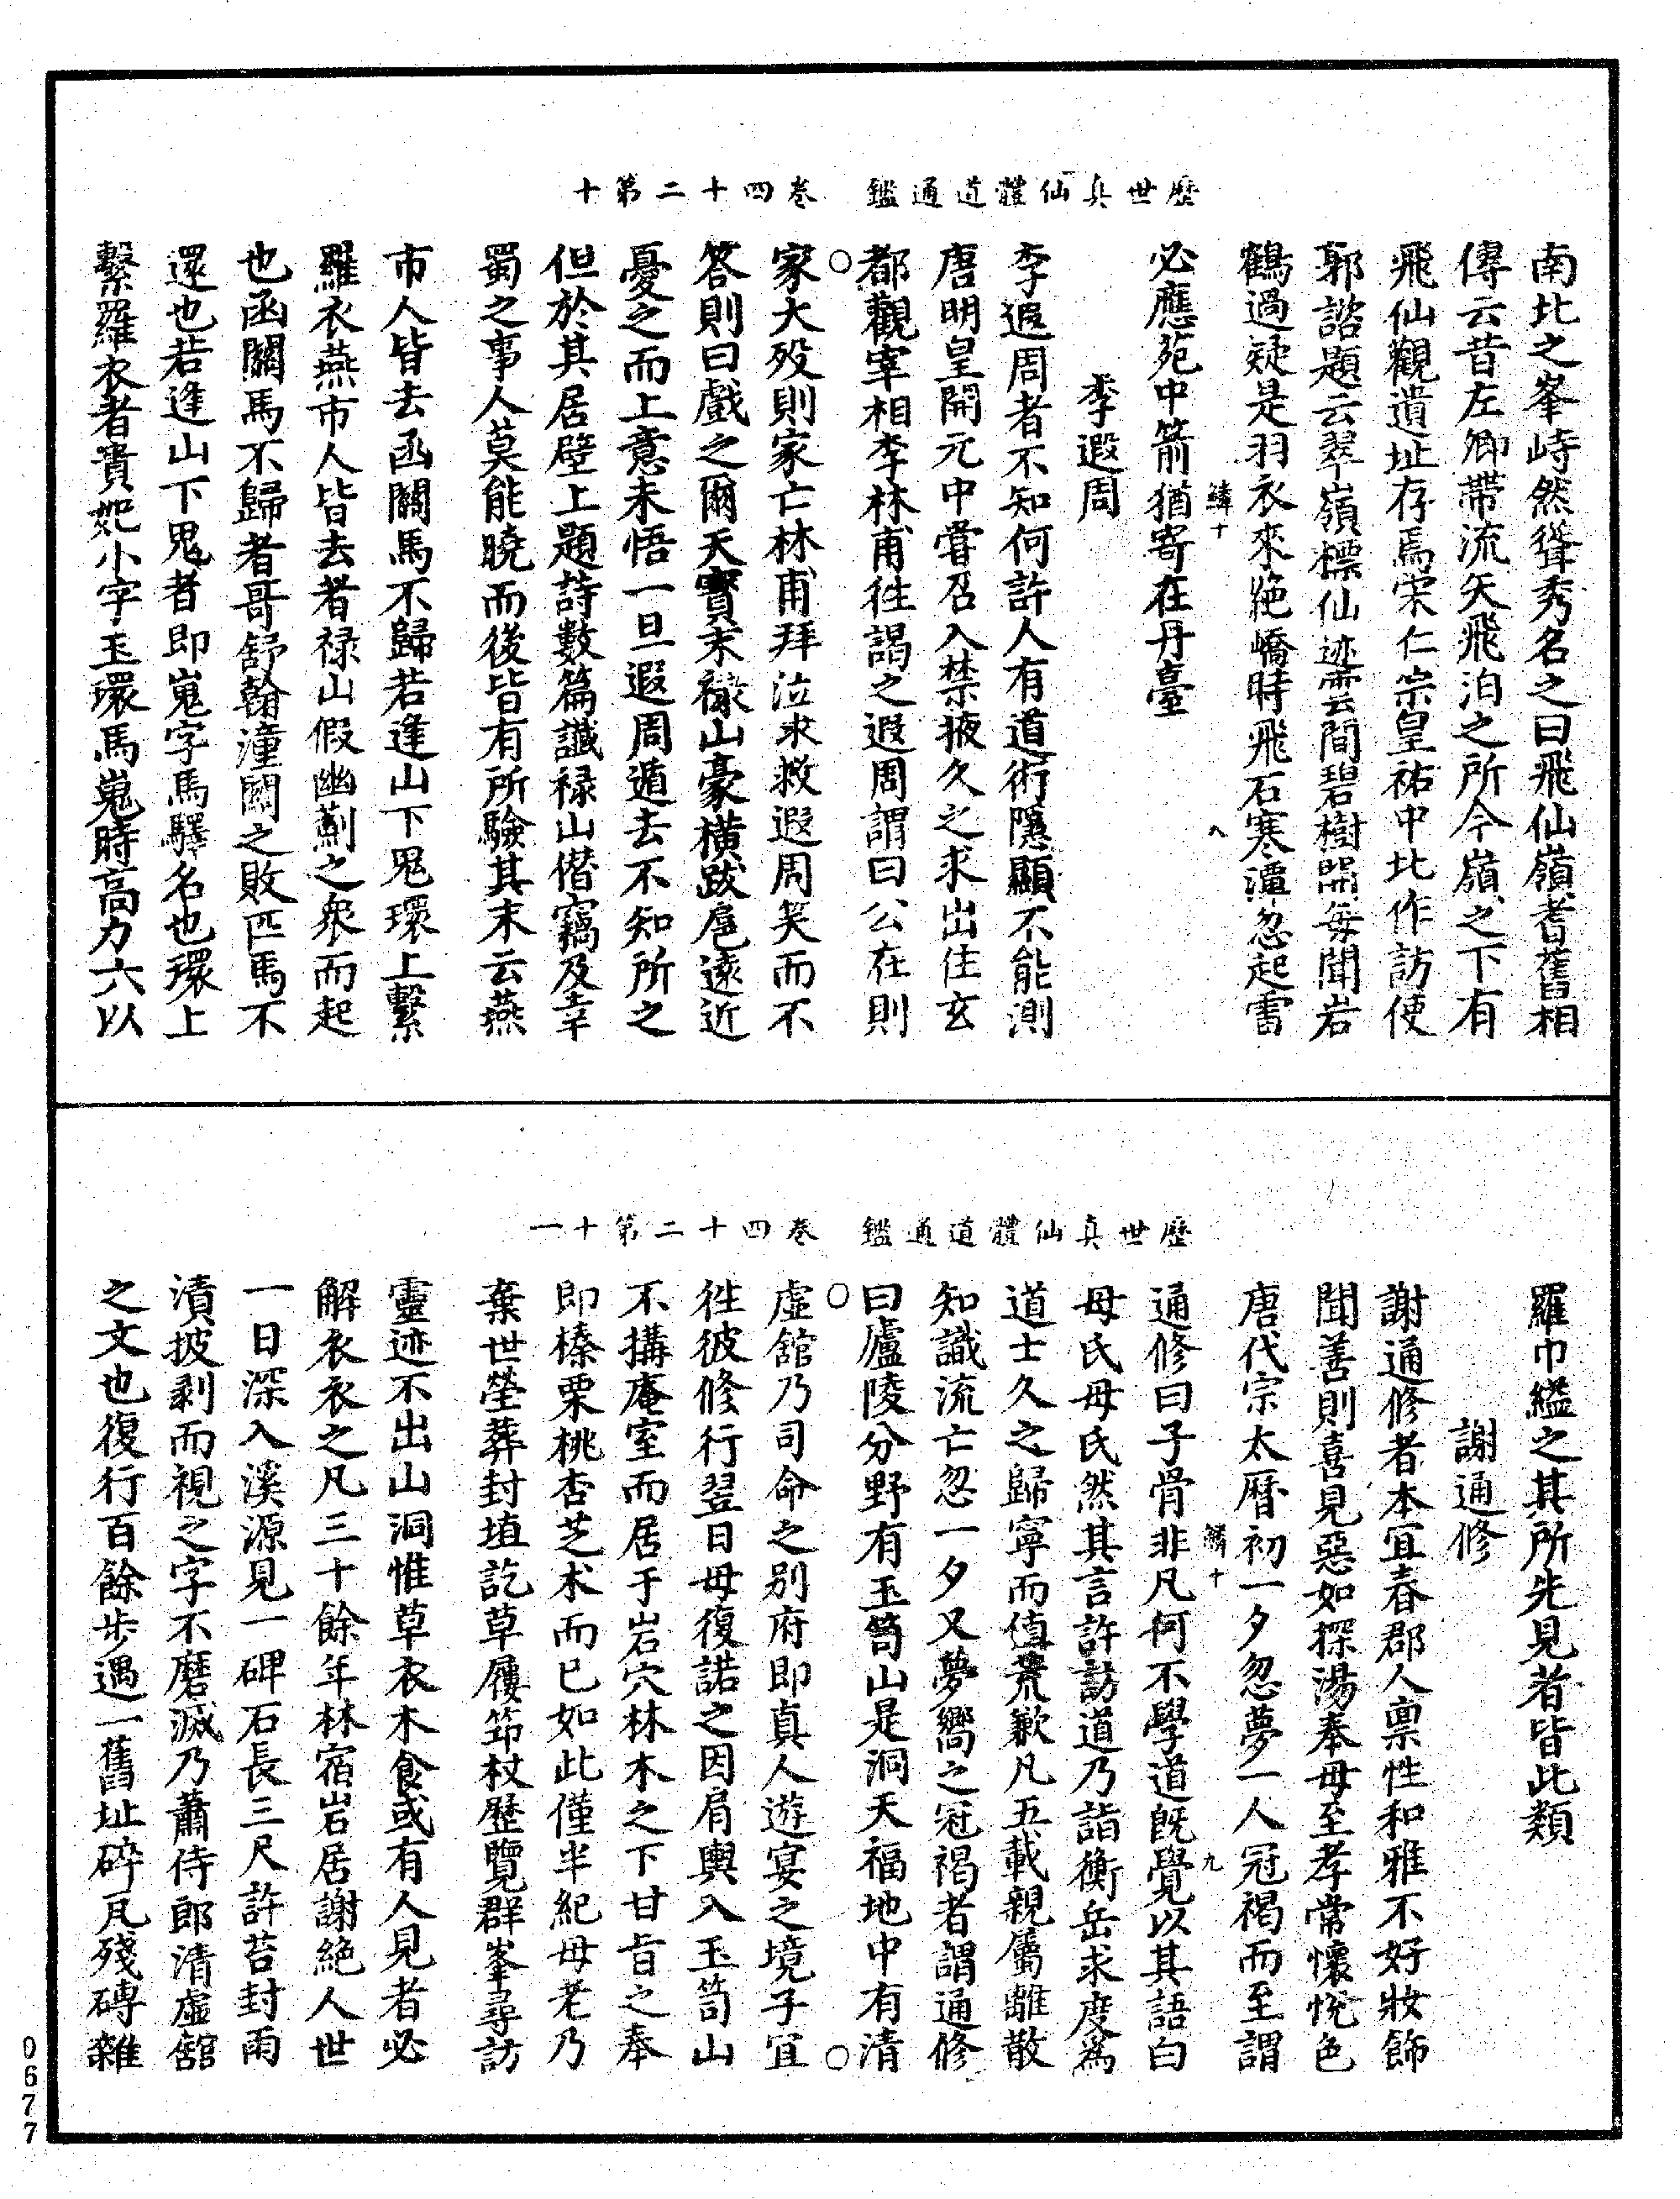 歷世真仙體道通鑑　卷四十二第十
南北之峯峙然聳秀名之曰飛仙嶺耆舊相
傳云昔左卿帶流矢飛泊之所今嶺之下有
飛仙觀遺址存焉宋仁宗皇祐中北作訪使
郭諮題云翠嶺標仙迹雲間碧樹開每聞岩
鶴過疑是羽衣來絶嶠時飛石寒潭忽起雷
鱗十　八
必應苑中箭猶寄在丹臺
李遐周
李遐周者不知何許人有道術隱顯不能測
唐明皇開元中嘗召入禁掖久之求出住玄
都觀宰相李林甫徃謁之遐周謂曰公在則
家大殁則家亡林甫拜泣求救遐周笑而不
答則曰戲之爾天寳末禄山豪横跋扈遠近
憂之而上意未悟一旦遐周遁去不知所之
但於其居壁上題詩數篇讖禄山僣竊及幸
蜀之事人莫能曉而後皆有所驗其末云燕
市人皆去函關馬不歸若逢山下鬼環上繫
羅衣燕市人皆去者禄山假幽薊之衆而起
也函關馬不歸者哥舒翰潼關之敗匹馬不
還也若逢山下鬼者即嵬字馬驛名也環上
繫羅衣者貴妃小字玉環馬嵬時高力六以
歷世真仙體道通鑑　卷四十二第十一
羅巾縊之其所先見者皆此類
謝通修
謝通修者本宜春郡人禀性和雅不好妝飾
聞善則喜見惡如探湯奉母至孝常懷悅色
唐代宗太曆初一夕忽夢一人冠褐而至謂
鱗十　九
通修曰子骨非凡何不學道既覺以其語白
母氏母氏然其言許訪道乃詣衡岳求度爲
道士久之歸寧而值荒歉凡五載親屬離散
知識流亡忽一夕又夢嚮之冠褐者謂通修
曰廬陵分野有玉笥山是洞天福地中有清
虛舘乃司命之別府即真人遊宴之境子宜
徃彼修行翌日母復諾之因肩輿入玉笥山
不搆庵室而居于岩穴林木之下甘旨之奉
即榛栗桃杏芝术而已如此僅半紀母老乃
棄世塋葬封埴訖草履笻杖歷覽群峯尋訪
靈迹不出山洞惟草衣木食或有人見者必
解衣衣之凡三十餘年林宿岩居謝絶人世
一日深入溪源見一碑石長三尺許苔封雨
漬披剥而視之字不磨滅乃蕭侍郎清虛舘
之文也復行百餘步遇一舊址碎瓦殘磚雜
0677